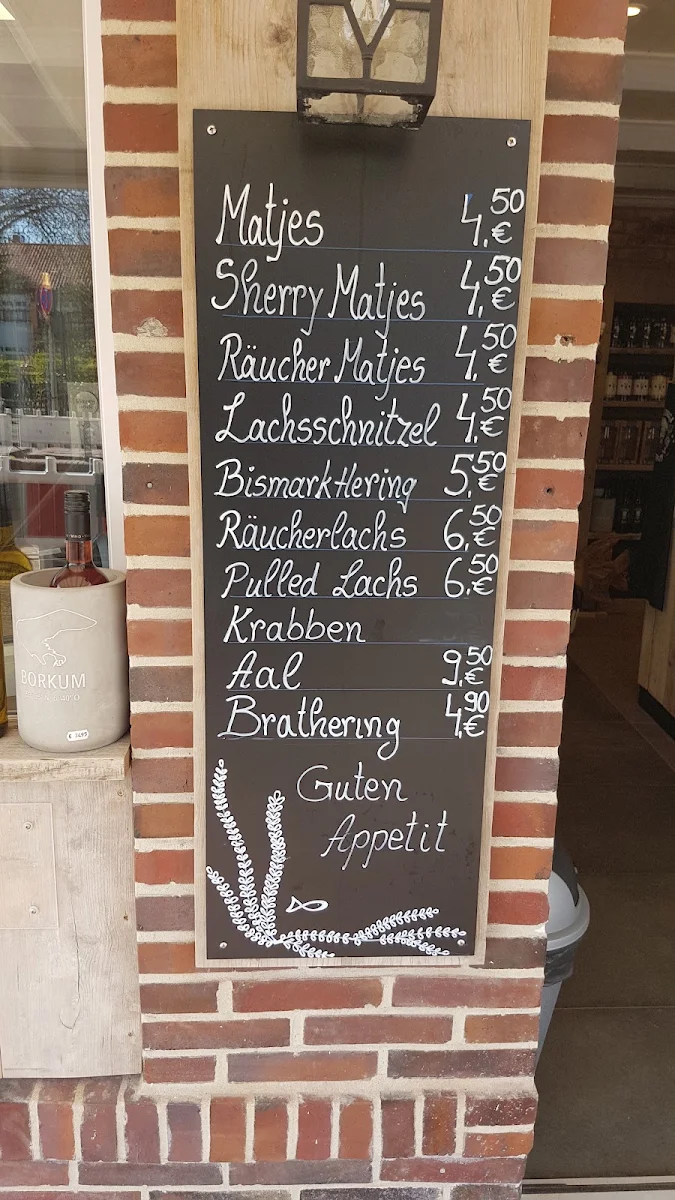 Matjes 4,50 €
Sherry Matjes 4,50 €
Räucher Matjes 4,50 €
Lachsschnitzel 4,50 €
BismarkHering 5,50 €
Räucherlachs 6,50 €
Pulled Lachs 6,50 €
Krabben
Aal 9,50 €
Brathering 4,90 €
Guten
Appetit
BORKUM